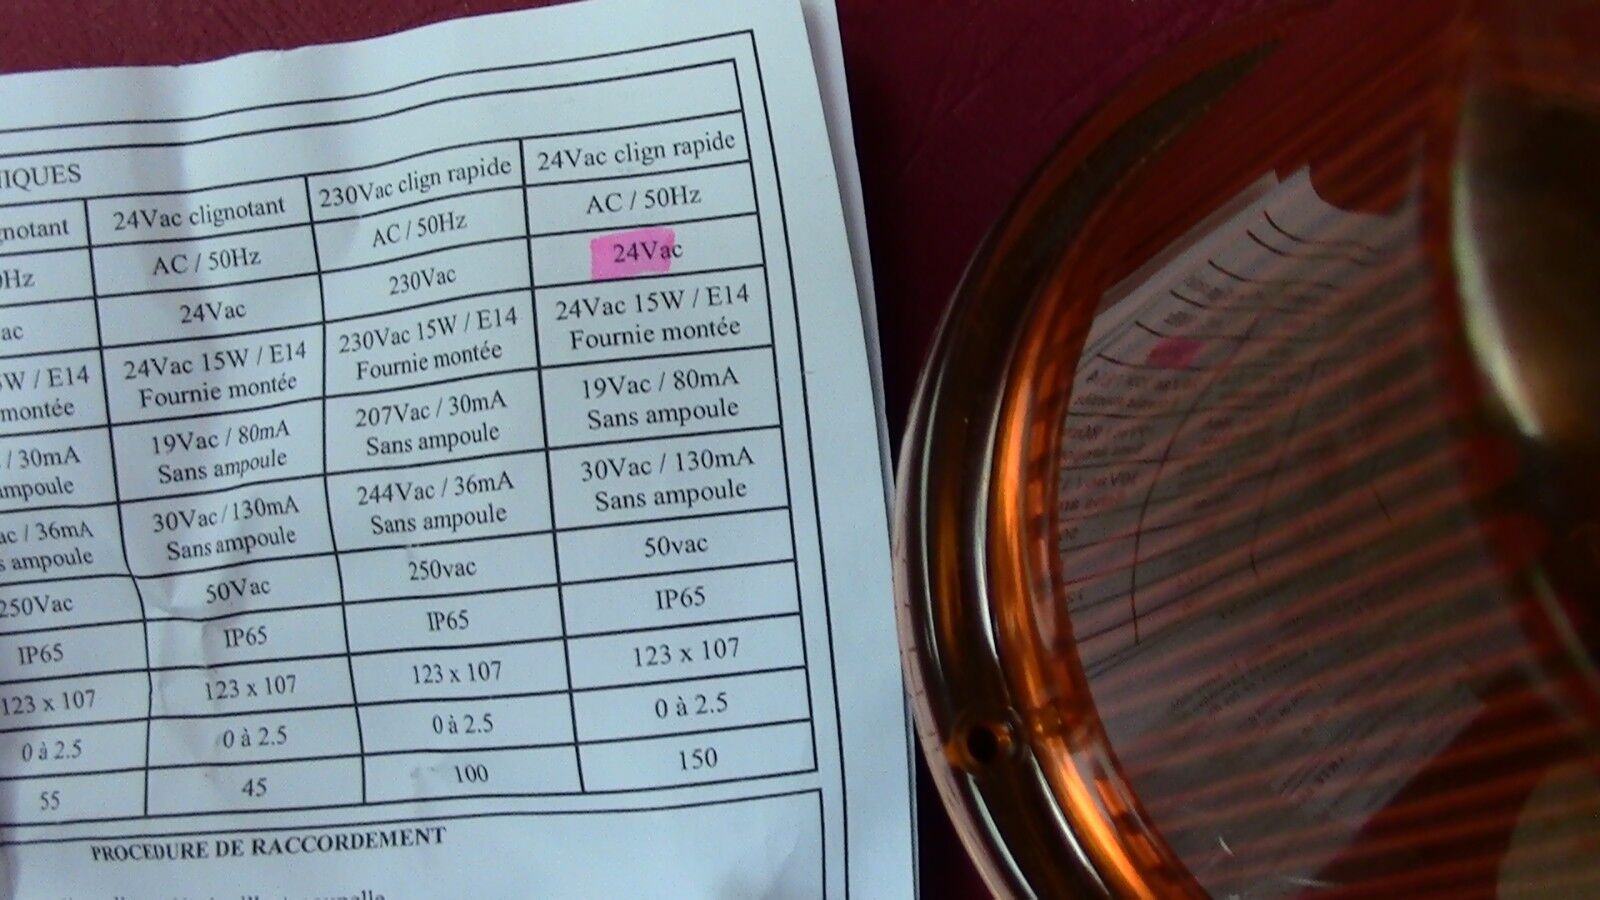 IQUES
notant 24Vac clignotant 230Vac clign rapide 24Vac clign rapide
Hz AC / 50Hz AC / 50Hz AC / 50Hz
ac 24Vac 230Vac 24Vac
W / E14 24Vac 15W / E14 230Vac 15W / E14 24Vac 15W / E14
montée Fournie montée Fournie montée Fournie montée
/ 30mA 19Vac / 80mA 207Vac / 30mA 19Vac / 80mA
mpoule Sans ampoule Sans ampoule Sans ampoule
ac / 36mA 30Vac / 130mA 244Vac / 36mA 30Vac / 130mA
s ampoule Sans ampoule Sans ampoule Sans ampoule
250Vac 50Vac 250vac 50vac
IP65 IP65 IP65 IP65
123 x 107 123 x 107 123 x 107 123 x 107
0 à 2.5 0 à 2.5 0 à 2.5 0 à 2.5
55 45 100 150
PROCEDURE DE RACCORDEMENT